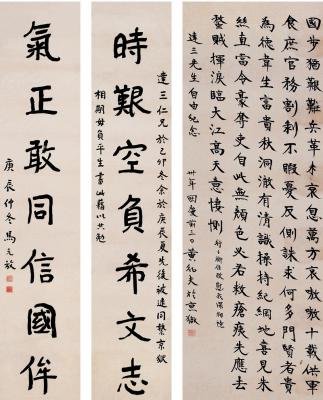 國步猶艱難兵革未衰息萬方哀嗷嗷十載供軍
食庶官務割剥不暇憂反側誅求何多門賢者貴
為德韋生富春秋洞澈有清識操持紀綱地喜見朱
絲直當令豪奪吏自此無顏色必若救瘡痍先應去
蟊賊揮淚臨大江高天意悽惻 行行樹佳政慰我深相憶
達三先生自由紀念
卅年國慶前二日黃紀夫於京獄
達三仁兄於己卯冬余於庚辰夏先後被逮同繫京獄
時艱空負希文志
相期毋負平生書此藉以共勉
氣正敢同信國侔
庚辰仲冬馬元放